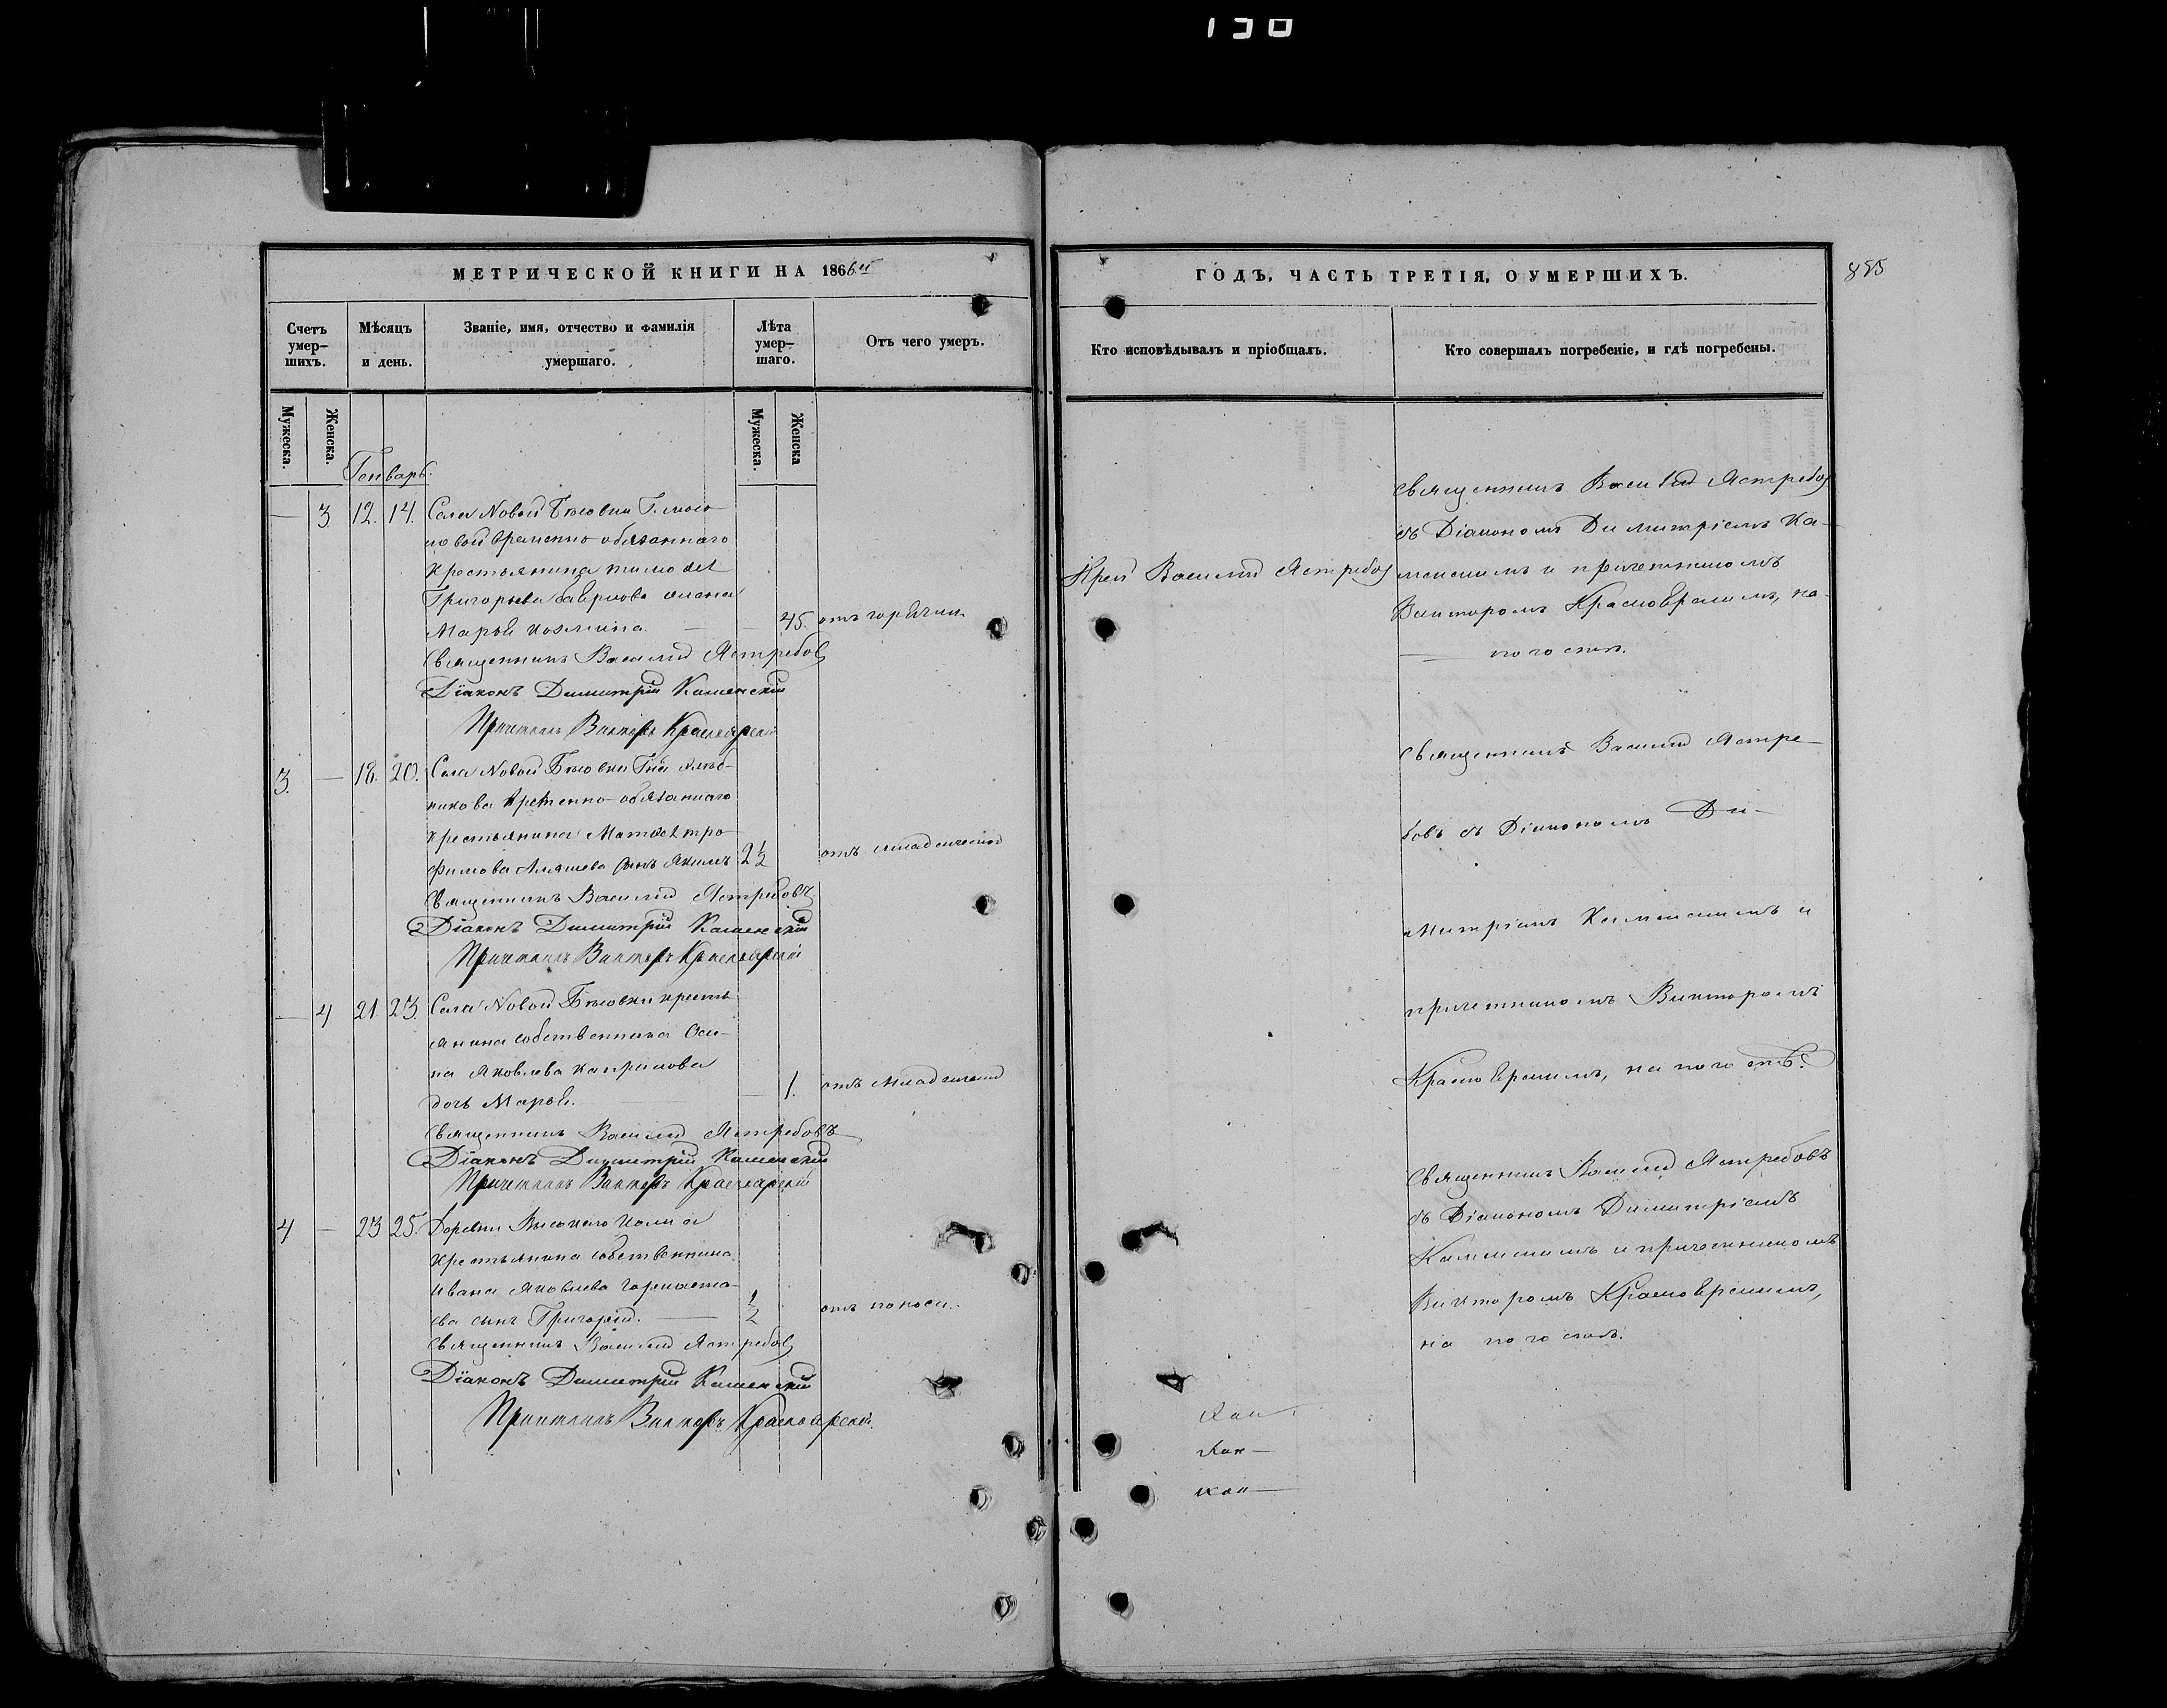 130
МЕТРИЧЕСКОЙ КНИГИ НА 1866й
Счетъ умер-шихъ.
Мѣсяцъ и день.
Званіе, имя, отчество и фамилія умершаго.
Лѣта умер-шаго.
Отъ чего умеръ.
Мужеска.
Женска.
Мужеска.
Женска
Генварь.
— 3 12. 14. Села Новой Бѣловки
временно-обязаннаго
крестьянина
Григорьева жена
Марья 45. отъ горячки
Священникъ Василій Ястребовъ
Діаконъ Димитрій Каменскій
Причетникъ Викторъ Красноярскій
3. — 18. 20. Села Новой Бѣловки
временно-обязаннаго
крестьянина Матвея Тро-
фимова сынъ Якимъ 2½ отъ младенческой
Священникъ Василій Ястребовъ
Діаконъ Димитрій Каменскій
Причетникъ Викторъ Красноярскій
— 4 21 23. Села Новой Бѣловки кресть-
янина собственника Оси-
па Яковлева
дочь Марья. 1. отъ младенческой
Священникъ Василій Ястребовъ
Діаконъ Димитрій Каменскій
Причетникъ Викторъ Красноярскій
4 — 23 25. Деревни Высокаго
Крестьянина собственника
Ивана Яковлева Горноста-
ева сынъ Григорій. — ½ отъ поноса.
Священникъ Василій Ястребовъ
Діаконъ Димитрій Каменскій
Причетникъ Викторъ Красноярскій.
ГОДЪ, ЧАСТЬ ТРЕТІЯ, О УМЕРШИХЪ.
855
Кто исповѣдывалъ и пріобщалъ.
Кто совершалъ погребеніе, и гдѣ погребены.
Іерей Василій Ястребовъ
Священникъ Василій Ястребовъ
съ Діакономъ Димитріемъ Ка-
менскимъ и причетникомъ
Викторомъ Красноярскимъ, на
— погостѣ.
Священникъ Василій Ястре-
бовъ съ Діакономъ Ди-
митріемъ Каменскимъ и
причетникомъ Викторомъ
Красноярскимъ, на погостѣ.
Священникъ Василій Ястребовъ
съ Діакономъ Димитріемъ
Каменскимъ и причетникомъ
Викторомъ Красноярскимъ,
на погостѣ.